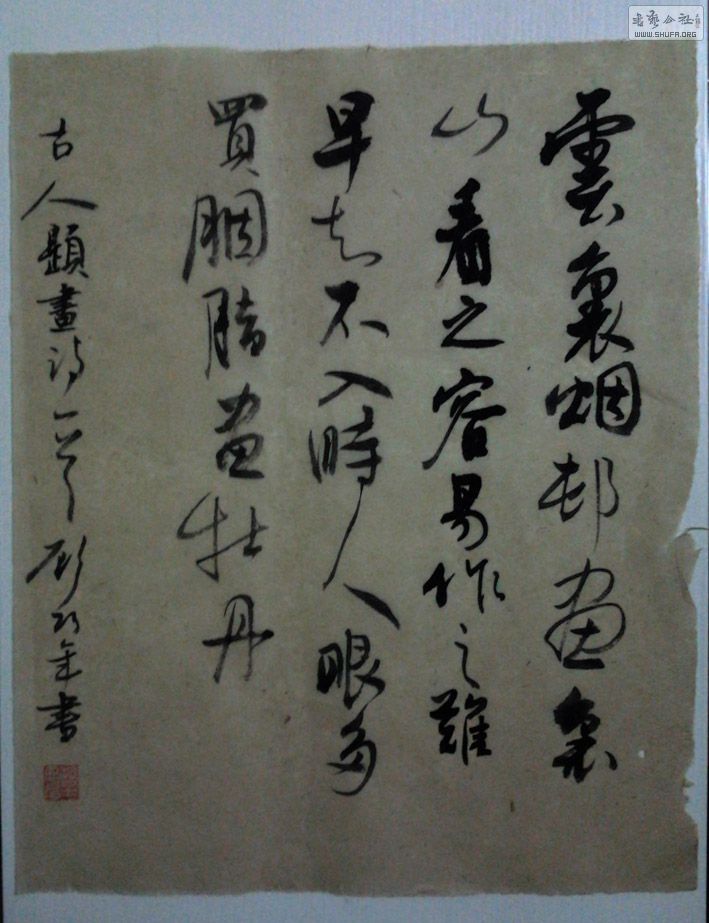 書藝公社
WWW.SHUFA.ORG
雲裏烟邨畫裏
山看之容易作之難
早知不入時人眼多
買胭脂畫牡丹
古人題畫詩一首 年書